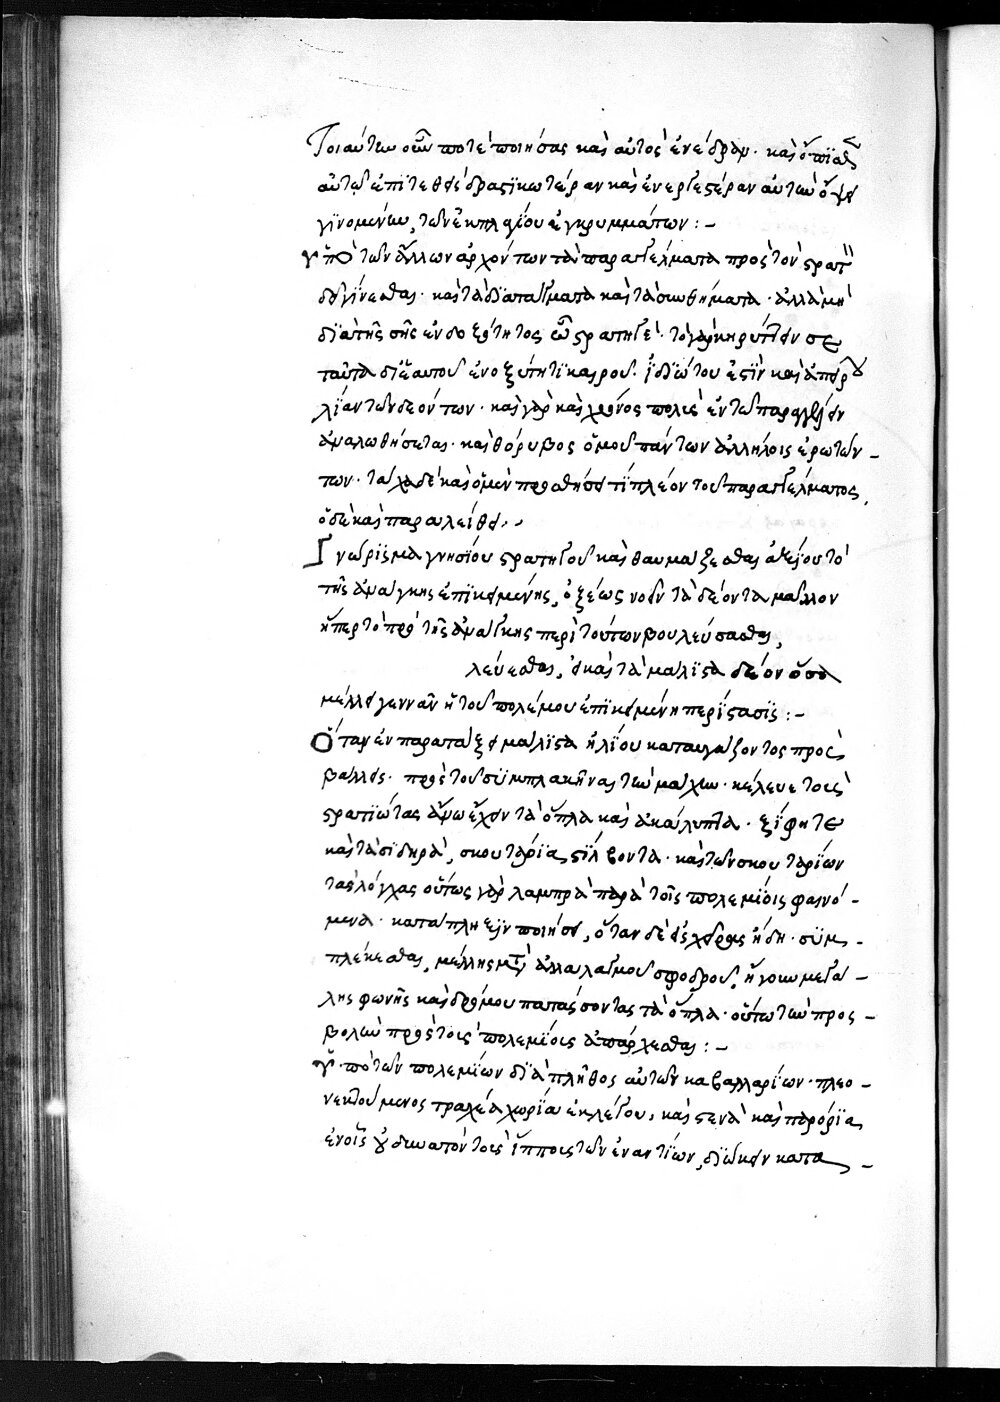 Τοιαύτην οὖν ποτὲ ποιήσας καὶ αὐτὸς ἐνέδραν. καὶ ὄπισθεν
αὐτοῦ ἐπιτεθεὶ δραστϊκωτέραν καὶ ἐνεργεστέραν αὐτὴν ὄψει
γϊνομένην, τῶν ἐκ πλαγίου ἐγκρυμμάτων :-
ὑπὸ τῶν ἄλλων ἀρχόντων τὰ παραγγέλματα πρὸς τὸν στρατὸν
δεῖ γίνεσθαι. καὶ τὰ διατάγματα καὶ τὰ συνθήματα. ἀλλὰ μὴ
διὰ τῆς σῆς ἐνδοξότητος ὦ στρατηγέ. τὸ γὰρ κηρύττειν σε
ταῦτα διὲ αυτοῦ ἐν ὀξύτητι καιροῦ. ἰδϊώτου ἐστὶν καὶ ἀπείρου
λίαν τῶν δεόντων. καὶ γὰρ καὶ χρόνος πολὺς ἐν τῶ παραγγέλλειν
ἀναλωθήσεται. καὶ θόρυβος ὁμοῦ πάντων ἀλλήλοις ἐρωτών-
των. τάχα δὲ καὶ ὁ μὲν προσθήσει τί πλέον τοῦ παραγγέλματος,
ὁ δὲ καὶ παραλείψει.
Γνώρϊσμα γνησίου στρατηγοῦ καὶ θαυμάζεσθαι ἀξίου τὸ
τῆς ἀνάγκης ἐπϊκειμένης, ὀξέως νοεῖν τὰ δέοντα μᾶλλον
ἤπερ τὸ πρὸ τῆς ἀνάγκης περὶ τούτων βουλεύσασθαι,
λεύεσθαι, εἰ καὶ τὰ μάλιστα δέον ὅσα
μέλλει γεννᾶν ἡ τοῦ πολέμου ἐπϊκειμένη περίστασϊς :-
Ὅταν ἐν παρατάξει μάλϊστα ἡλίου καταυγάζοντος προσ
βάλλεις. πρὸ τοῦ συμπλακῆναι τὴν μάχην. κέλευε τοὺς
στρατϊώτας ἄνω ἔχειν τὰ ὅπλα καὶ ἀκάλυπτα. ξίφη τε
καὶ τὰ σίδηρὰ, σκουτάρϊα, στίλβοντα. καὶ τῶν σκουταρίων
τὰς λόγχας οὕτως γὰρ λαμπρὰ παρὰ τοῖς πολεμίοις φαινό-
μενα. κατάπληξϊν ποιήσει, ὅταν δὲ εἰς χεῖρας ἤδη. συμ-
πλέκεσθαι, μέλλης μετὰ ἀλλαλαγμοῦ σφοδροῦ, ἤγουν μεγά-
λης φωνῆς καὶ δρόμου πατάσσοντας τὰ ὅπλα. οὕτω τὴν προσ-
βολὴν πρὸς τοὺς πολεμίοις ἀπάρχεσθαι :-
ὑπὸ τῶν πολεμίων διὰ πλῆθος αὐτῶν καβαλλαρίων. πλεο-
νεκτούμενος τραχέα χωρία ἐκλέγου, καὶ στενὰ καὶ παρόρϊα,
ἐν οἷς οὐ δυνατὸν τοῖς ἵπποις τῶν ἐναντίων, διώκειν κατα-